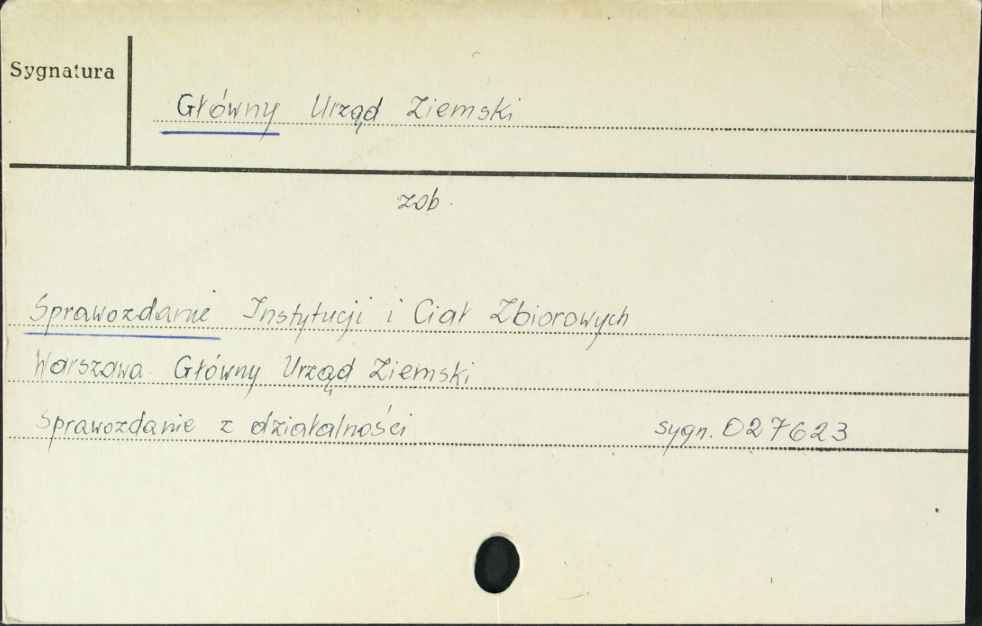 Sygnatura
Główny Urząd Ziemski
zob.
Sprawozdanie Instytucji i Ciał Zbiorowych
Warszawa. Główny Urząd Ziemski
Sprawozdanie z działalności sygn. 027623